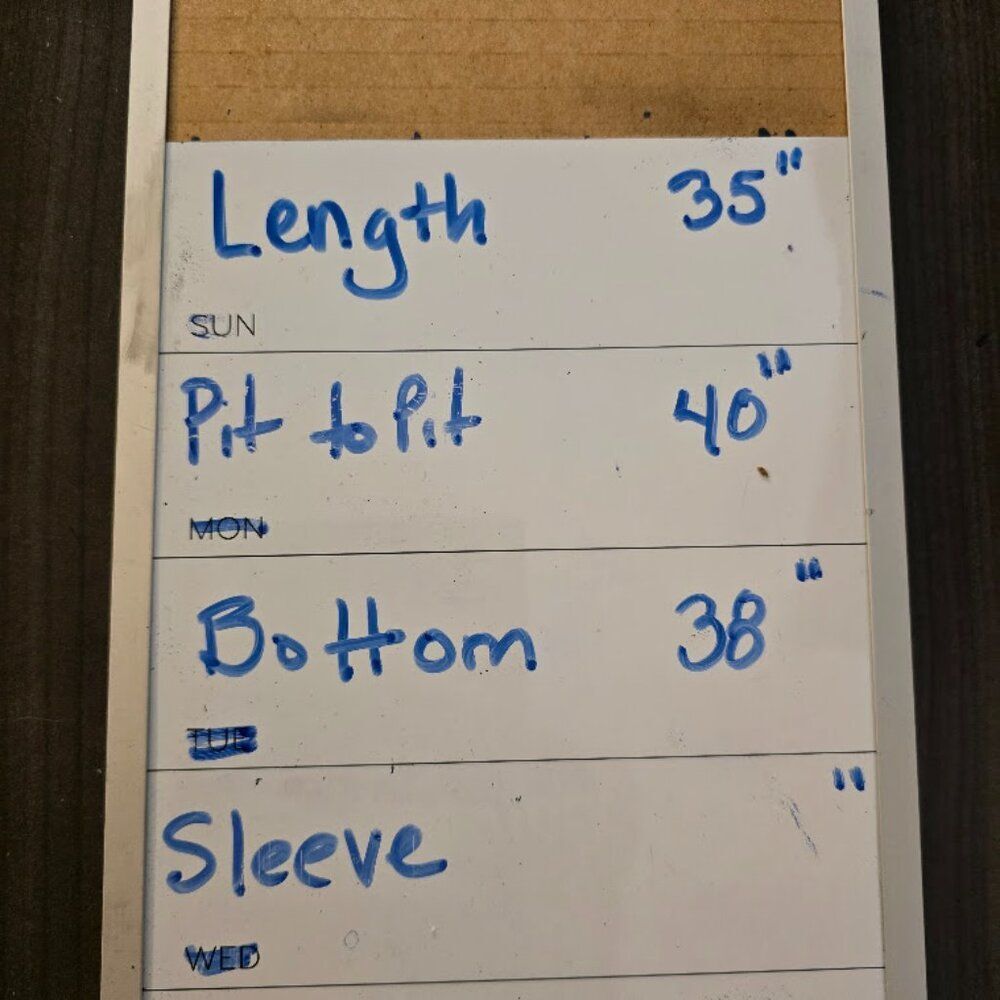 Length 35"
SUN
Pit to Pit 40"
MON
Bottom 38"
TUE
Sleeve "
WED